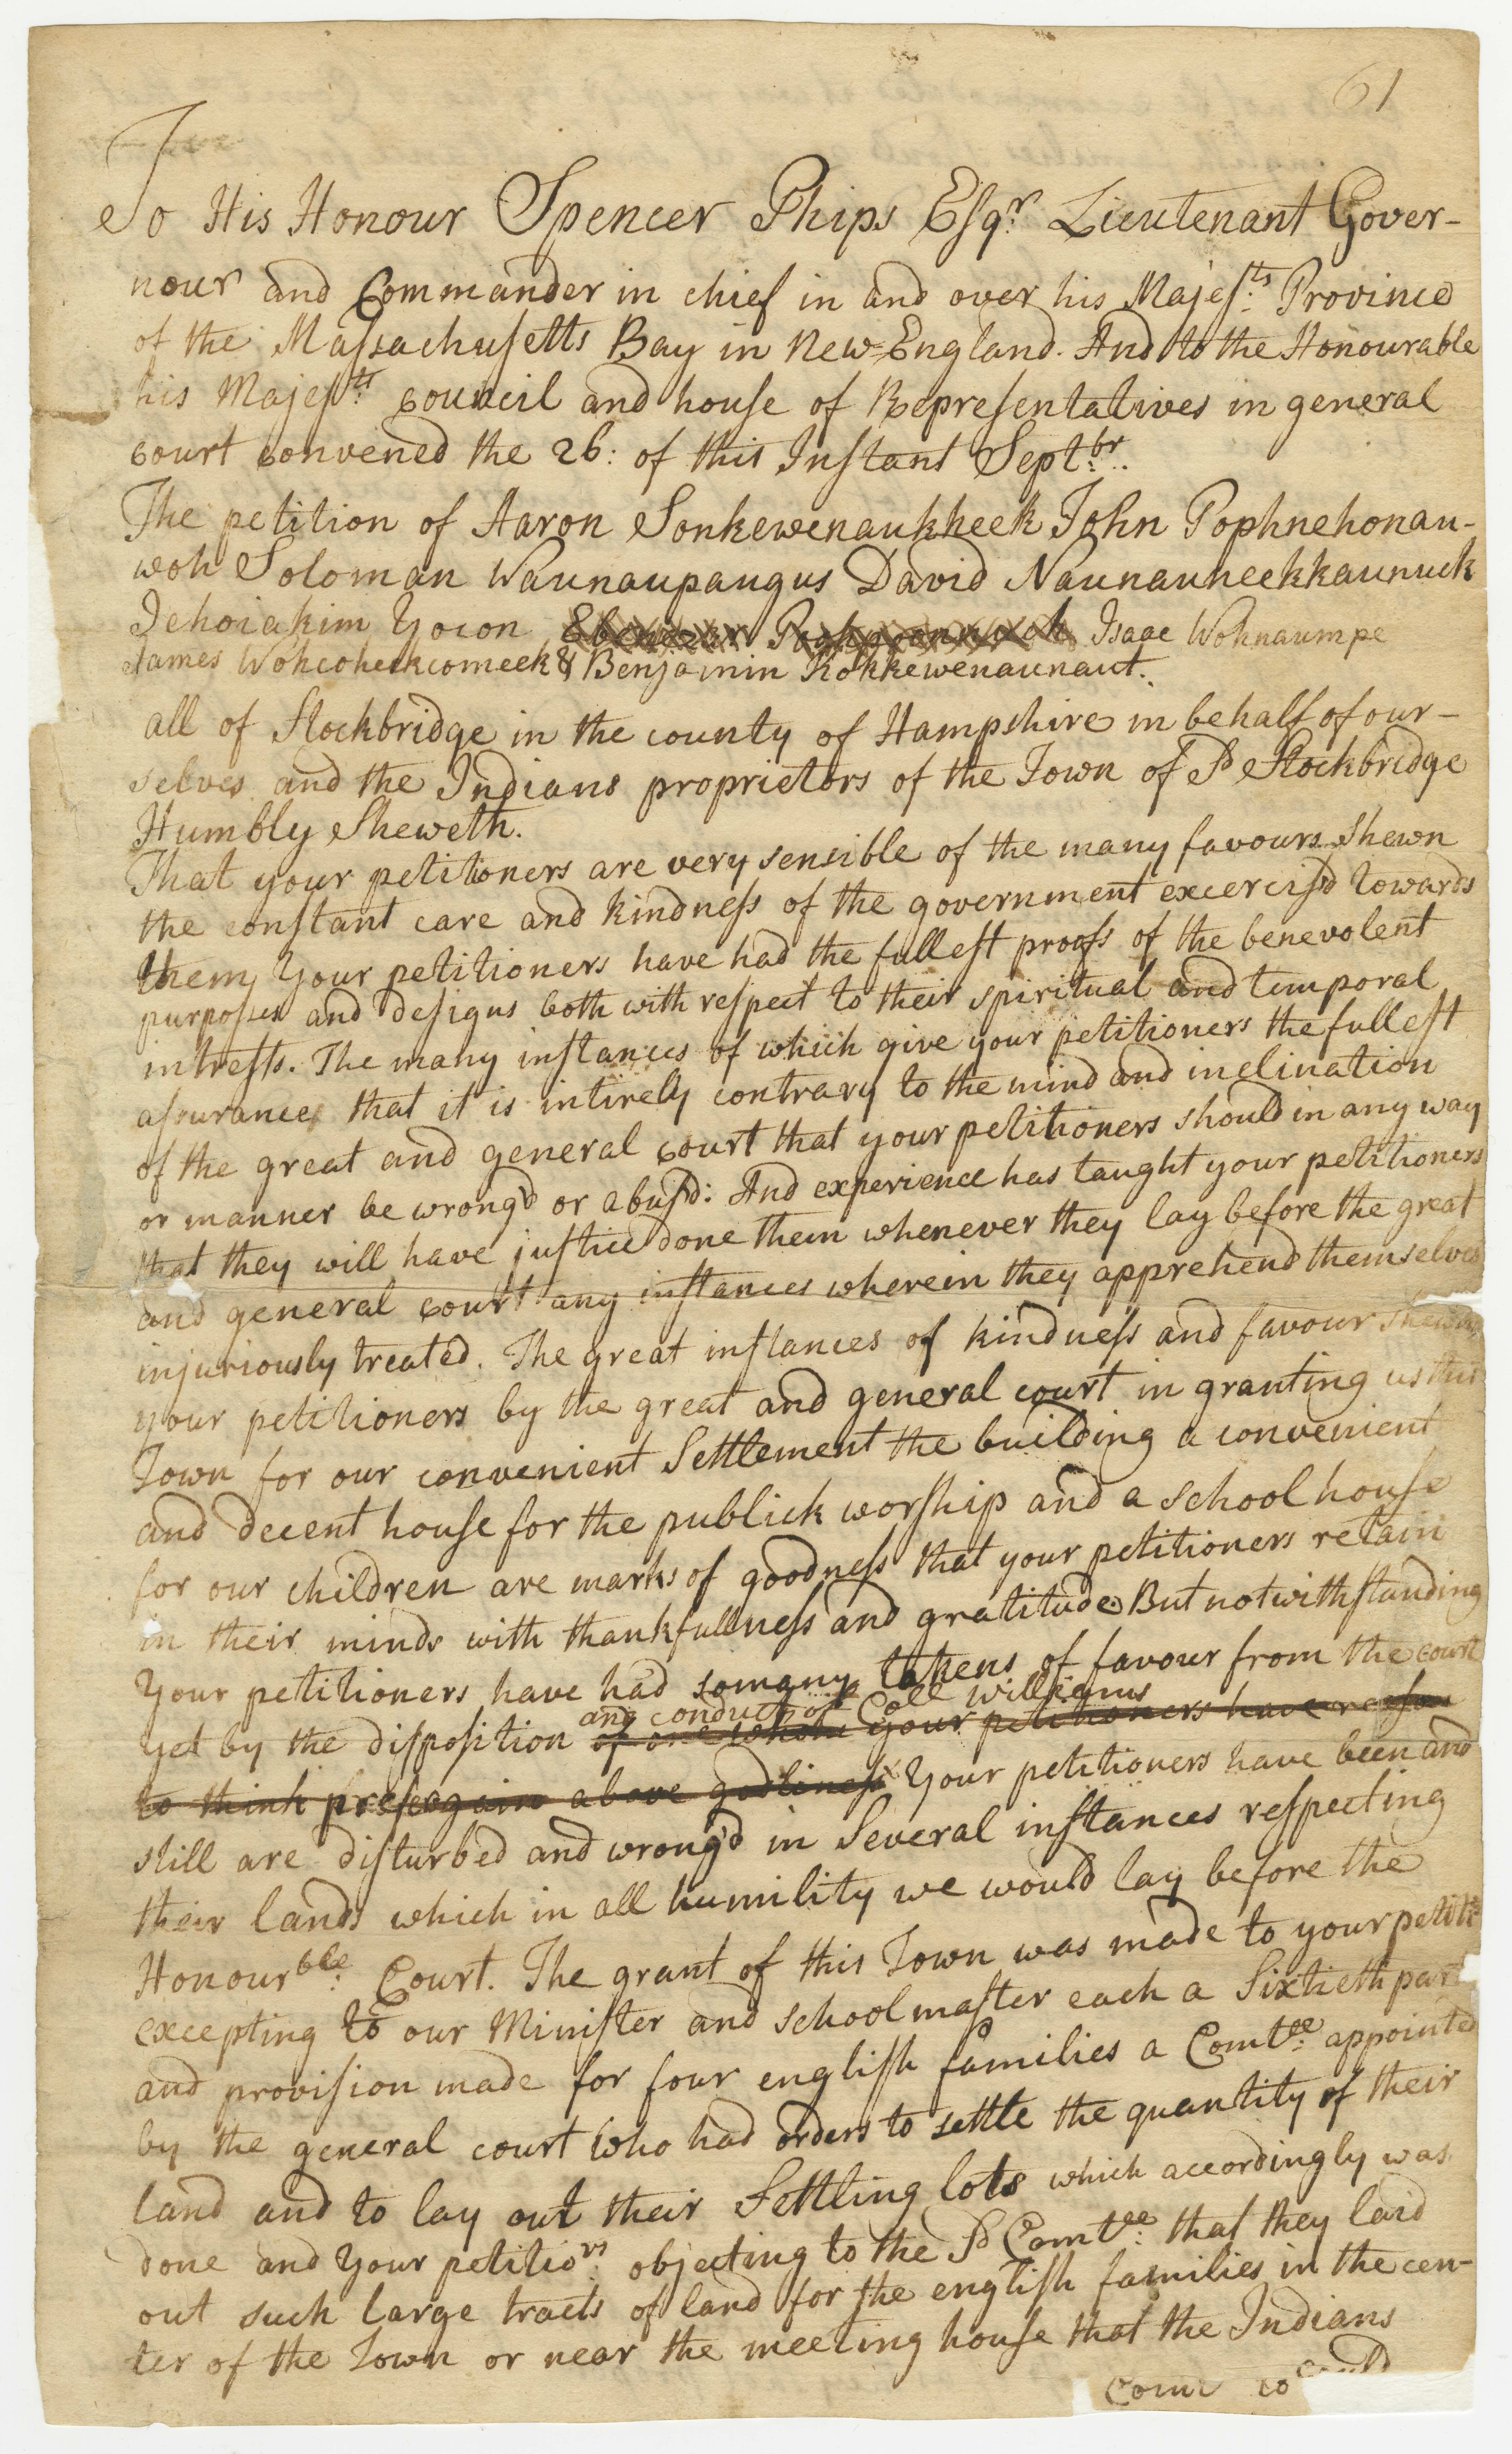 61
To His Honour Spencer Phips Esqr. Lieutenant Gover-
nour and Commander in chief in and over his Majesty's Province
of the Massachusetts Bay in New=England. And to the Honourable
his Majesty's Council and house of Representatives in general
court convened the 26: of this Instant Septbr.
The petition of Aaron Sonkewenaukheek John Pophnehonau-
woh Soloman Waunaupaugus David Naunauneekkaunuck
Jehoiakim Yocon Ebenezer Isaac Wohnaumpe
James Wohcoheekcomeek & Benjamin Kokkewenaunaut.
all of Stockbridge in the county of Hampshire in behalf of our-
selves and the Indians proprietors of the Town of Sd Stockbridge
Humbly Sheweth.
That your petitioners are very sensible of the many favours shewn
the constant care and kindness of the government excercis'd towards
them Your petitioners have had the fullest proofs of the benevolent
purposes and designs both with respect to their spiritual and temporal
intrests. The many instances of which give your petitioners the fullest
assurances that it is intirely contrary to the mind and inclination
of the great and general court that your petitioners should in any way
or manner be wrong'd or abus'd: And experience has taught your petitioners
that they will have justice done them whenever they lay before the great
and general court any instances wherein they apprehend themselves
injuriously treated. The great instances of kindness and favour
your petitioners by the great and general court in granting us this
Town for our convenient Settlement the building a convenient
and decent house for the publick worship and a school house
for our children are marks of goodness that your petitioners retain
in their minds with thankfullness and gratitude. But notwithstanding
Your petitioners have had so many tokens of favour from the court
and conduct of Coll Williams
yet by the disposition of one whom your petitioners have reason
to think prefer gain above godliness Your petitioners have been and
still are disturbed and wrong'd in Several instances respecting
their lands which in all humility we would lay before the
Honourble. Court. The grant of this Town was made to your petiti
excepting to our Minister and school master each a Sixtieth part
and provision made for four english families a Comtee. appointed
by the general court who had orders to settle the quantity of their
land and to lay out their Settling lots which accordingly was
done and Your petitiors. objecting to the Sd Comtee. that they laid
out such large tracts of land for the english families in the cen-
ter of the Town or near the meeting house that the Indians
could